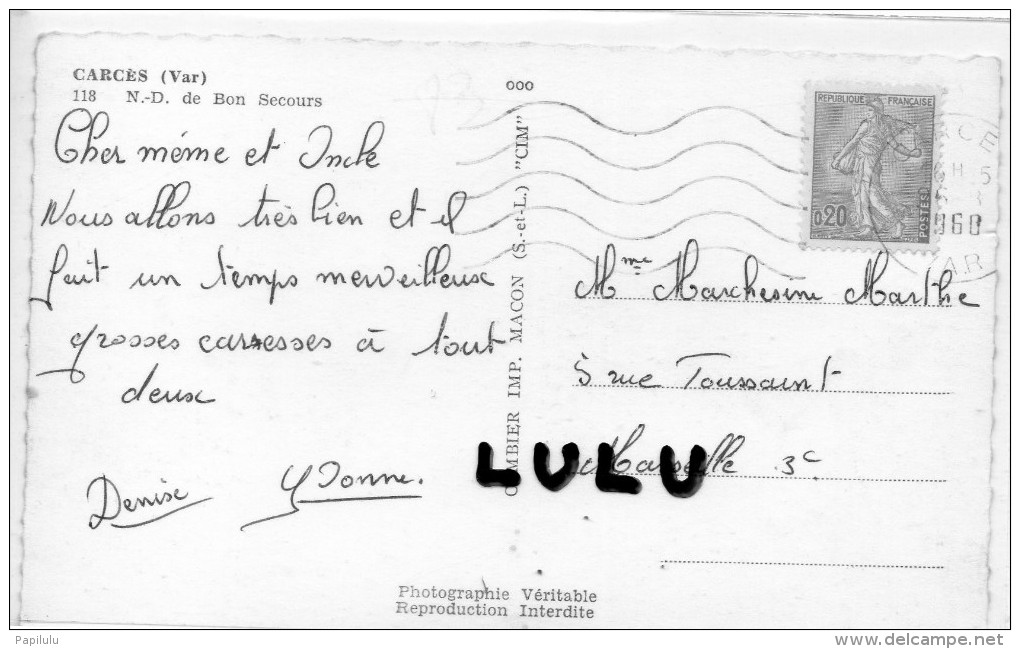 CARCÈS (Var)
118 N.-D. de Bon Secours
Cher mémé et Oncle
Nous allons très bien et il
fait un temps merveilleux
grosses caresses à tout
deux
Denise Yvonne.
OOO
COMBIER IMP. MACON (S.-et-L.) "CIM"
REPUBLIQUE FRANÇAISE
0,20
POSTES
960
Mme Marchesini Marthe
5 rue Toussaint
Marseille 3e
LULU
Photographie Véritable
Reproduction Interdite
Papilulu
http://www.delcampe.net